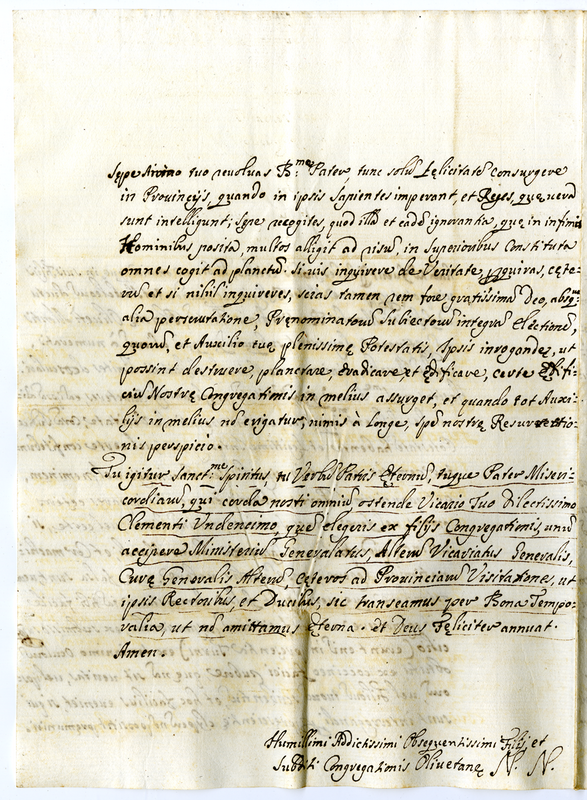 Sępe Animo tuo revoluas B.me Pater, tunc solũ Fęlicitatẽ consurgere
in Provincijs, quando in ipsis Sapientes imperant, et Reges, quę vera
sunt intelligunt; Sępe recogites, quod illa et eadẽ ignorantia, quę in infimis
Hominibus posita, multos alligit ad risũ, in Superioribus Constituta
omnes cogit ad planctũ. Si vis inquirere de Veritate inquiras, cęte-
rũ et si nihil inquireres, scias tamen rem fore gratissimã Deo, absq.
alia perscrutatione, Pręnominatorũ Subiectorũ integrã Electionẽ,
quorũ, et Auxilio tuę plenissimę Potestatis, Ipsis irrogandę, ut
possint destruere, plantare, eradicare et ędificare, certe Ędifi-
ciũ Nostrę Congregationis in melius assurget, et quando tot Auxi-
lijs in melius nõ erigatur, nimis à longe, Spẽ nostrę Resurrectio-
nis perspicio.
Tu igitur Sanct.me Spiritus, tu Verbũ Patris Ęternũ, tuque Pater Miseri-
cordiarũ, qui corda nosti omniũ ostende Vicario Tuo Dilectissimo
Clementi Undecimo, quẽ elegeris ex filijs Congregationis, unũ
accipere Ministeriũ Generalatus, Alterũ Vicariatus Generalis,
Curę Generalis Alterũ, Cęteros ad Provinciarũ Visitationes, ut
ipsis Rectoribus, et Ducibus, sic transeamus per Bona Tempo-
ralia, ut nõ amittamus Ęterna. et Deus Fęliciter annuat.
Amen.
Humillimi Addictissimi Obsequentissimi Filij, et
Subditi Congregationis Olivetanę N. N.